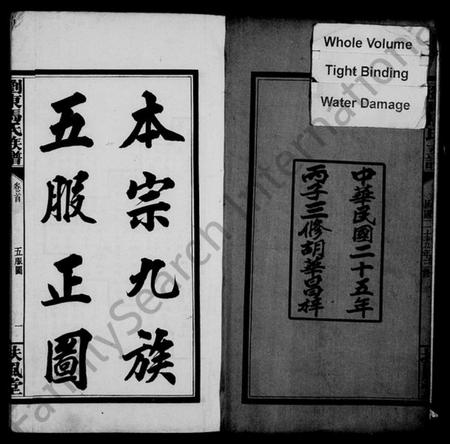 Whole Volume
Tight Binding
Water Damage
中華民國二十五年
丙子三修胡華昌梓
本宗九族
五服正圖
東馮氏族譜
卷首
五服圖
一
扶風堂
FamilySearch International